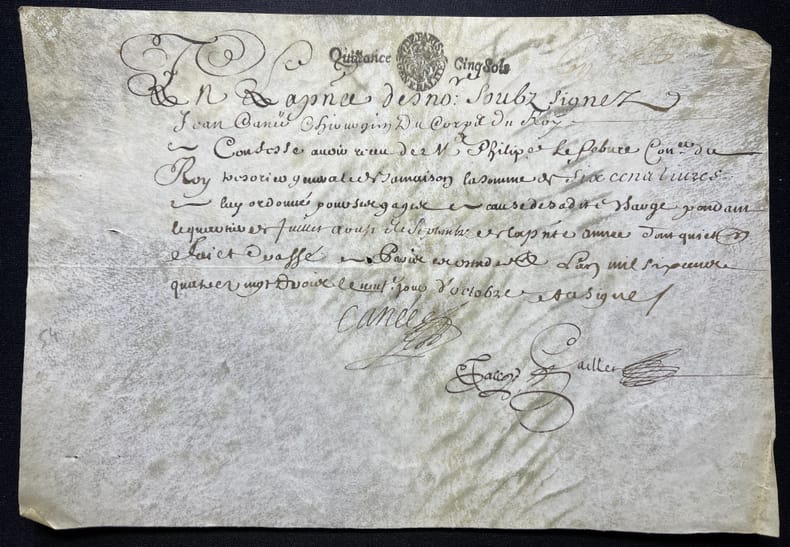 Quittance Cinq Sols
En La pnce des no.res Soubz signez
Jean Canée Chirurgien Du Corps du Roy
Confesse avoir receu de Mr Philippe Le febure Con.er du
Roy tresorier general de sa maison la somme de six cens livres
a luy ordonné pour ses gages a cause de sadite charge pendant
le quartier de Juillet aoust et Septembre de la pnte année dont quitt
faict et passé a Paris L'an mil six cens
quatre vingt trois le jour d'octobre et a signé
Canée
Gallois Caillet
54